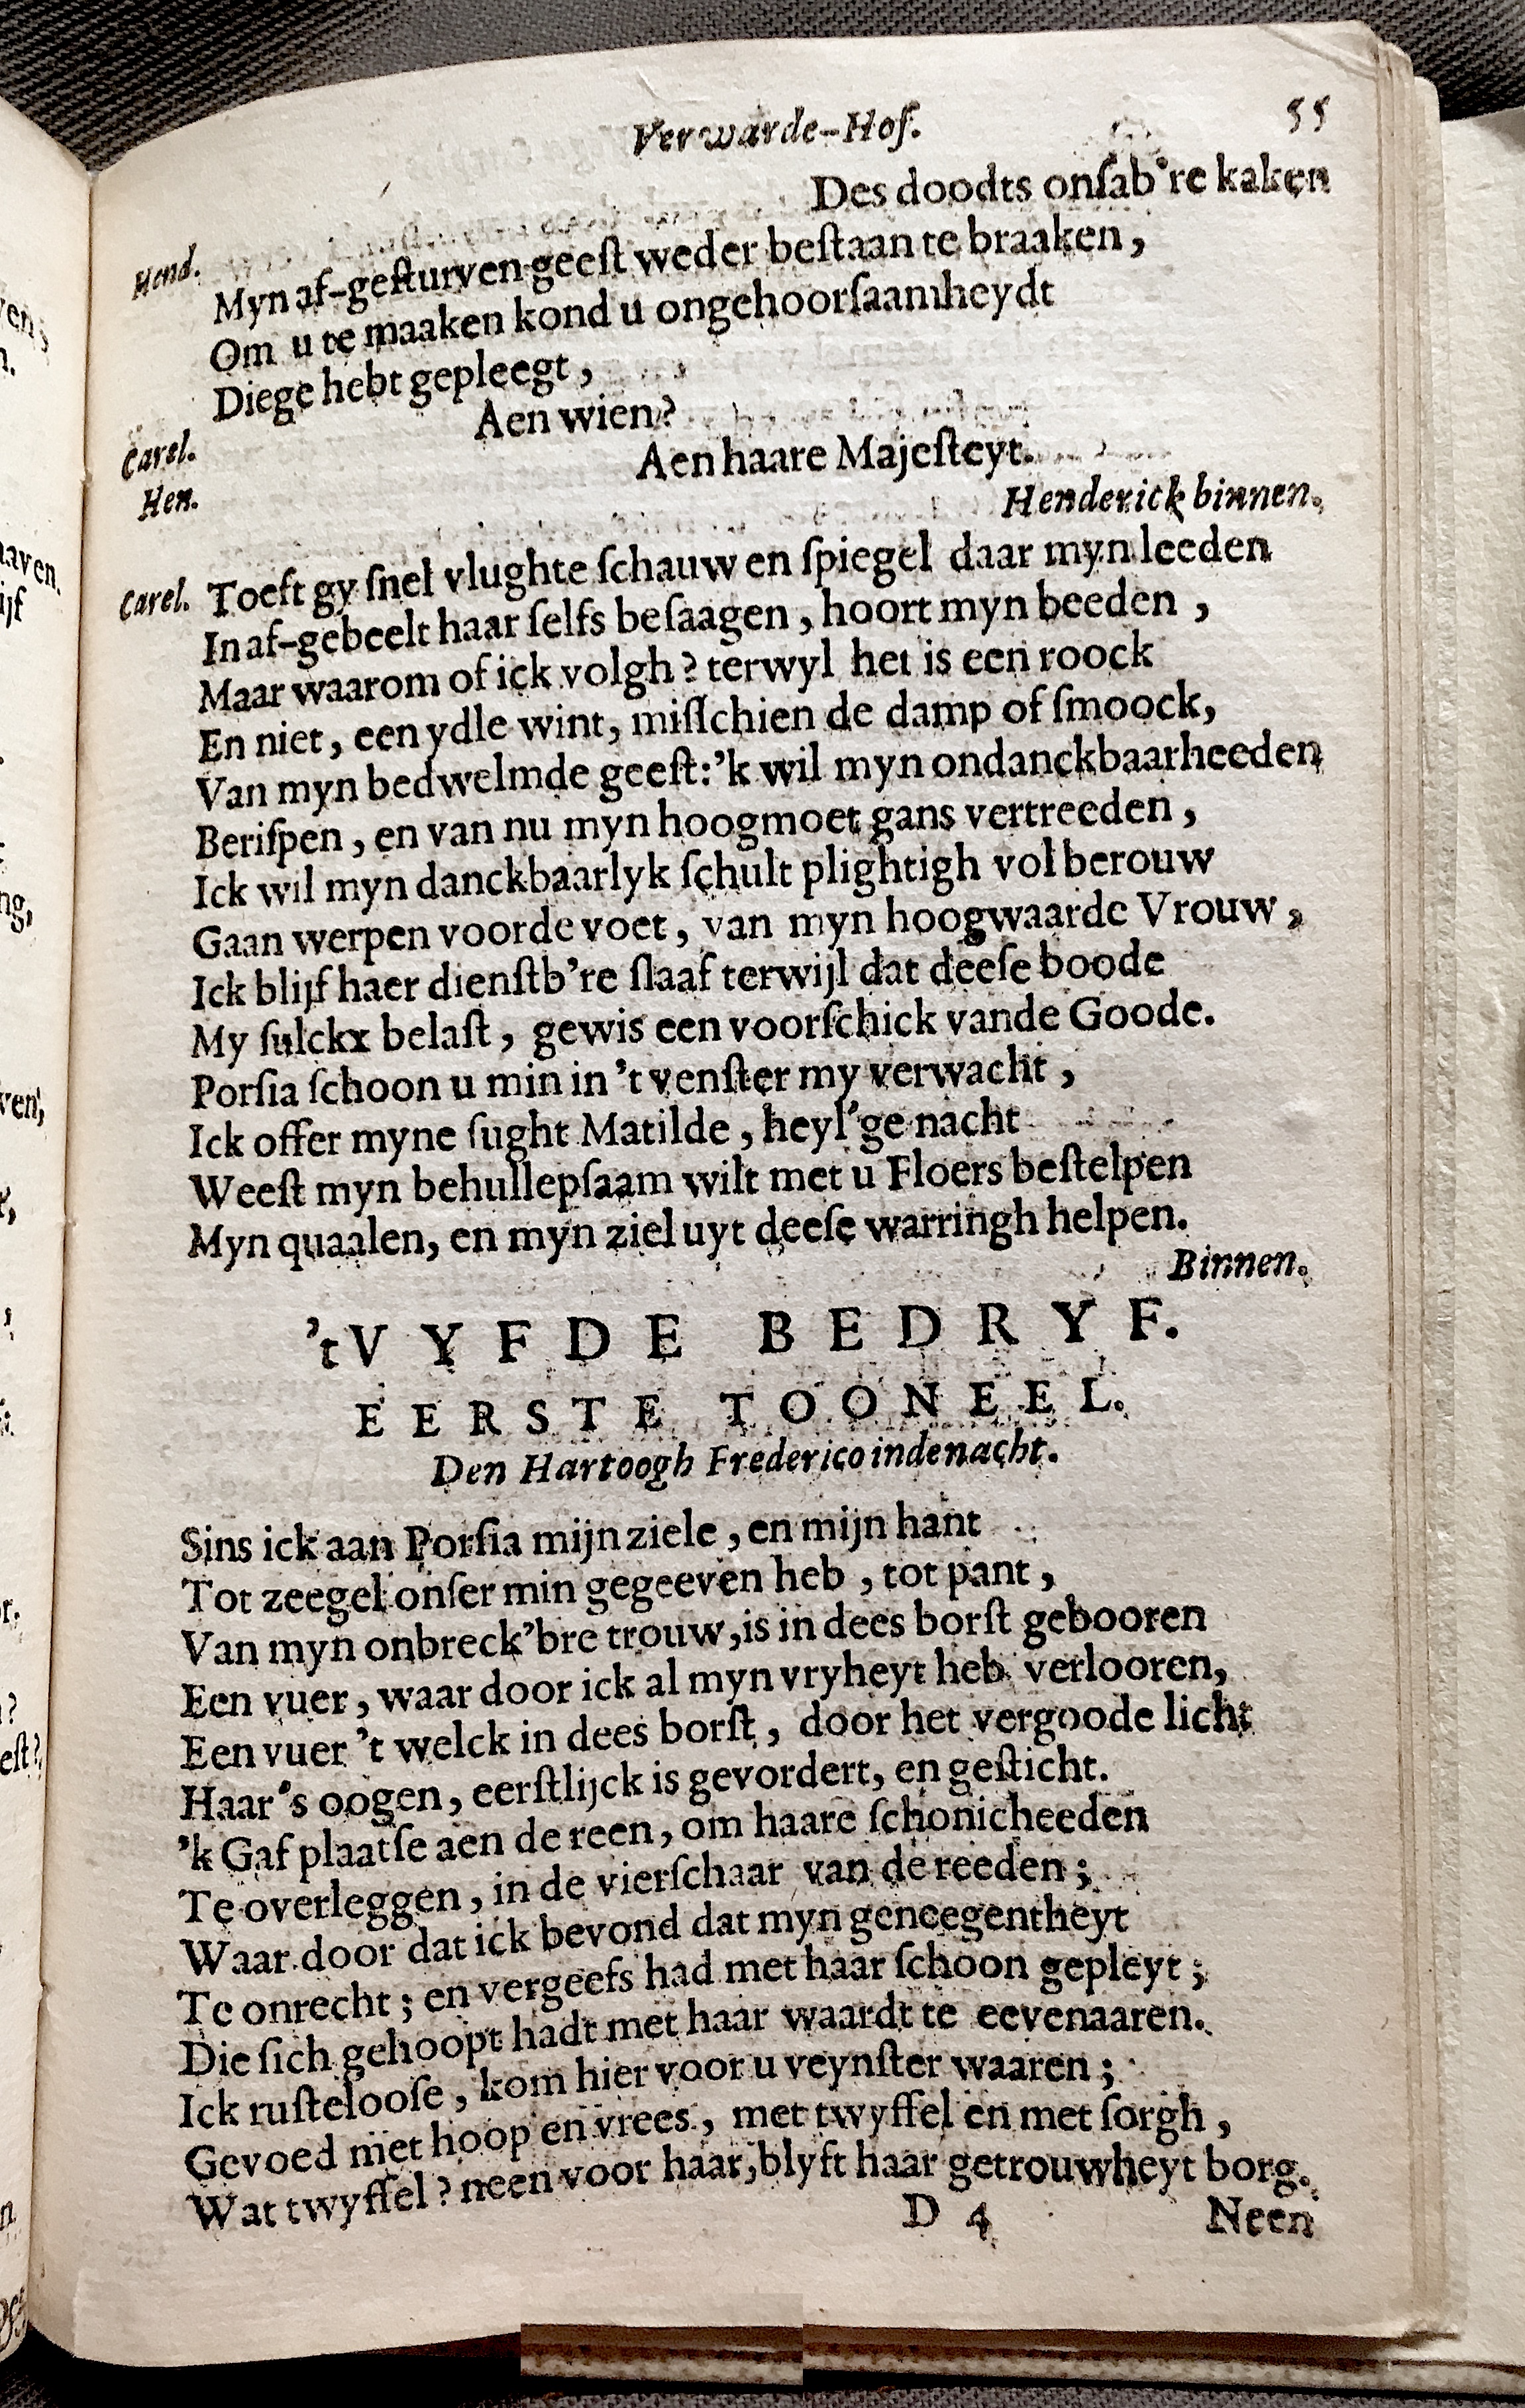 Verwarde-Hof. 55
Des doodts onſab're kaken
Hend.
Myn af-geſturven geeſt weder beſtaan te braaken,
Om u te maaken kond u ongehoorſaamheydt
Diege hebt gepleegt,
Carel. Aen wien?
Hen. Aen haare Majeſteyt.
Henderick binnen.
Carel. Toeft gy ſnel vlughte ſchauw en ſpiegel daar myn leeden
In af-gebeelt haar ſelfs beſaagen, hoort myn beeden,
Maar waarom of ick volgh? terwyl het is een roock
En niet, een ydle wint, miſſchien de damp of ſmoock,
Van myn bedwelmde geeſt: 'k wil myn ondanckbaarheeden
Beriſpen, en van nu myn hoogmoet gans vertreeden,
Ick wil myn danckbaarlyk ſchult plightigh vol berouw
Gaan werpen voorde voet, van myn hoogwaarde Vrouw,
Ick blijf haer dienſtb're ſlaaf terwijl dat deeſe boode
My ſulckx belaſt, gewis een voorſchick vande Goode.
Porſia ſchoon u min in 't venſter my verwacht,
Ick offer myne ſught Matilde, heyl'ge nacht
Weeſt myn behullepſaam wilt met u Floers beſtelpen
Myn quaalen, en myn ziel uyt deeſe warringh helpen.
Binnen.
't VYFDE BEDRYF.
EERSTE TOONEEL.
Den Hartoogh Frederico inde nacht.
Sins ick aan Porſia mijn ziele, en mijn hant
Tot zeegel onſer min gegeeven heb, tot pant,
Van myn onbreck'bre trouw, is in dees borſt gebooren
Een vuer, waar door ick al myn vryheyt heb verlooren,
Een vuer 't welck in dees borſt, door het vergoode licht
Haar's oogen, eerſtlijck is gevordert, en geſticht.
'k Gaf plaatſe aen de reen, om haare ſchonicheeden
Te overleggen, in de vierſchaar van de reeden;
Waar door dat ick bevond dat myn geneegentheyt
Te onrecht; en vergeefs had met haar ſchoon gepleyt;
Die ſich gehoopt hadt met haar waardt te eevenaaren.
Ick ruſtelooſe, kom hier voor u veynſter waaren;
Gevoed met hoop en vrees, met twyffel en met ſorgh,
Wat twyffel? neen voor haar, blyft haar getrouwheyt borg.
D 4 Neen